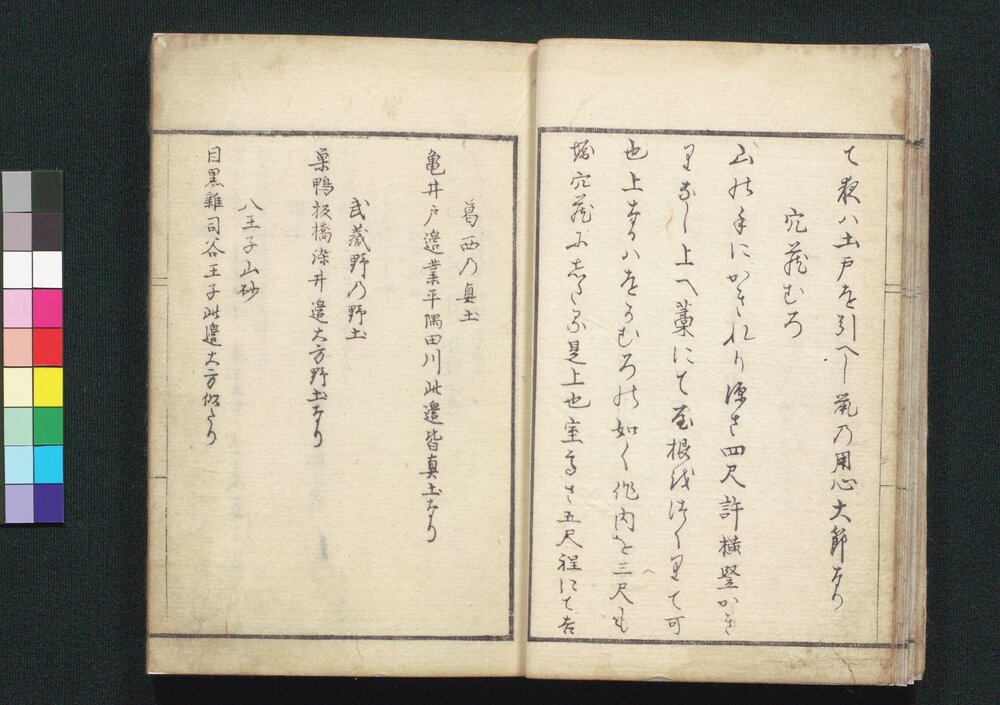 て夜ハ土戸を引へし鼠乃用心大節なり
穴蔵むろ
山の手にかきれり深さ四尺許横竪かき
りなし上へ藁にて屋根を作りて可
也上なるハをかむろの如く作内を三尺も
堀穴蔵にしたる是上也室高さ五尺程にて吉
葛西乃真土
亀井戸邊業平隅田川此邊皆真土なり
武蔵野乃野土
巣鴨板橋染井邊大方野土なり
八王子山砂
目黒雑司谷王子此邊大方似たり